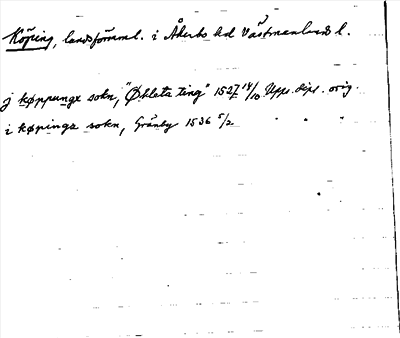 Köping, landsförsaml. i Åkerbo hd Västmanlands l.
j køppunge sokn, "Økleta ting" 1527 14/10 Upps. dipl. orig.
i køpinge sokn, Gränby 1536 5/2 " " "